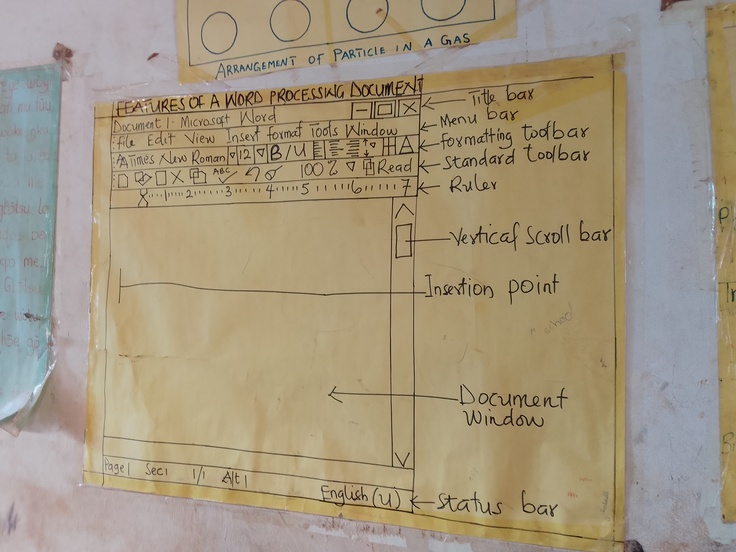 ARRANGEMENT OF PARTICLE IN A GAS
FEATURES OF A WORD PROCESSING DOCUMENT
Document 1 - Microsoft Word
Title bar
File Edit View Insert format Tools Window
Menu bar
AA Times New Roman 12 B / U A
formatting toolbar
ABC 100% Read
Standard toolbar
1 2 3 4 5 6 7
Ruler
Vertical Scroll bar
Insertion point
Document
Window
Page 1 Sec 1 1/1 At 1
English (U)
Status bar